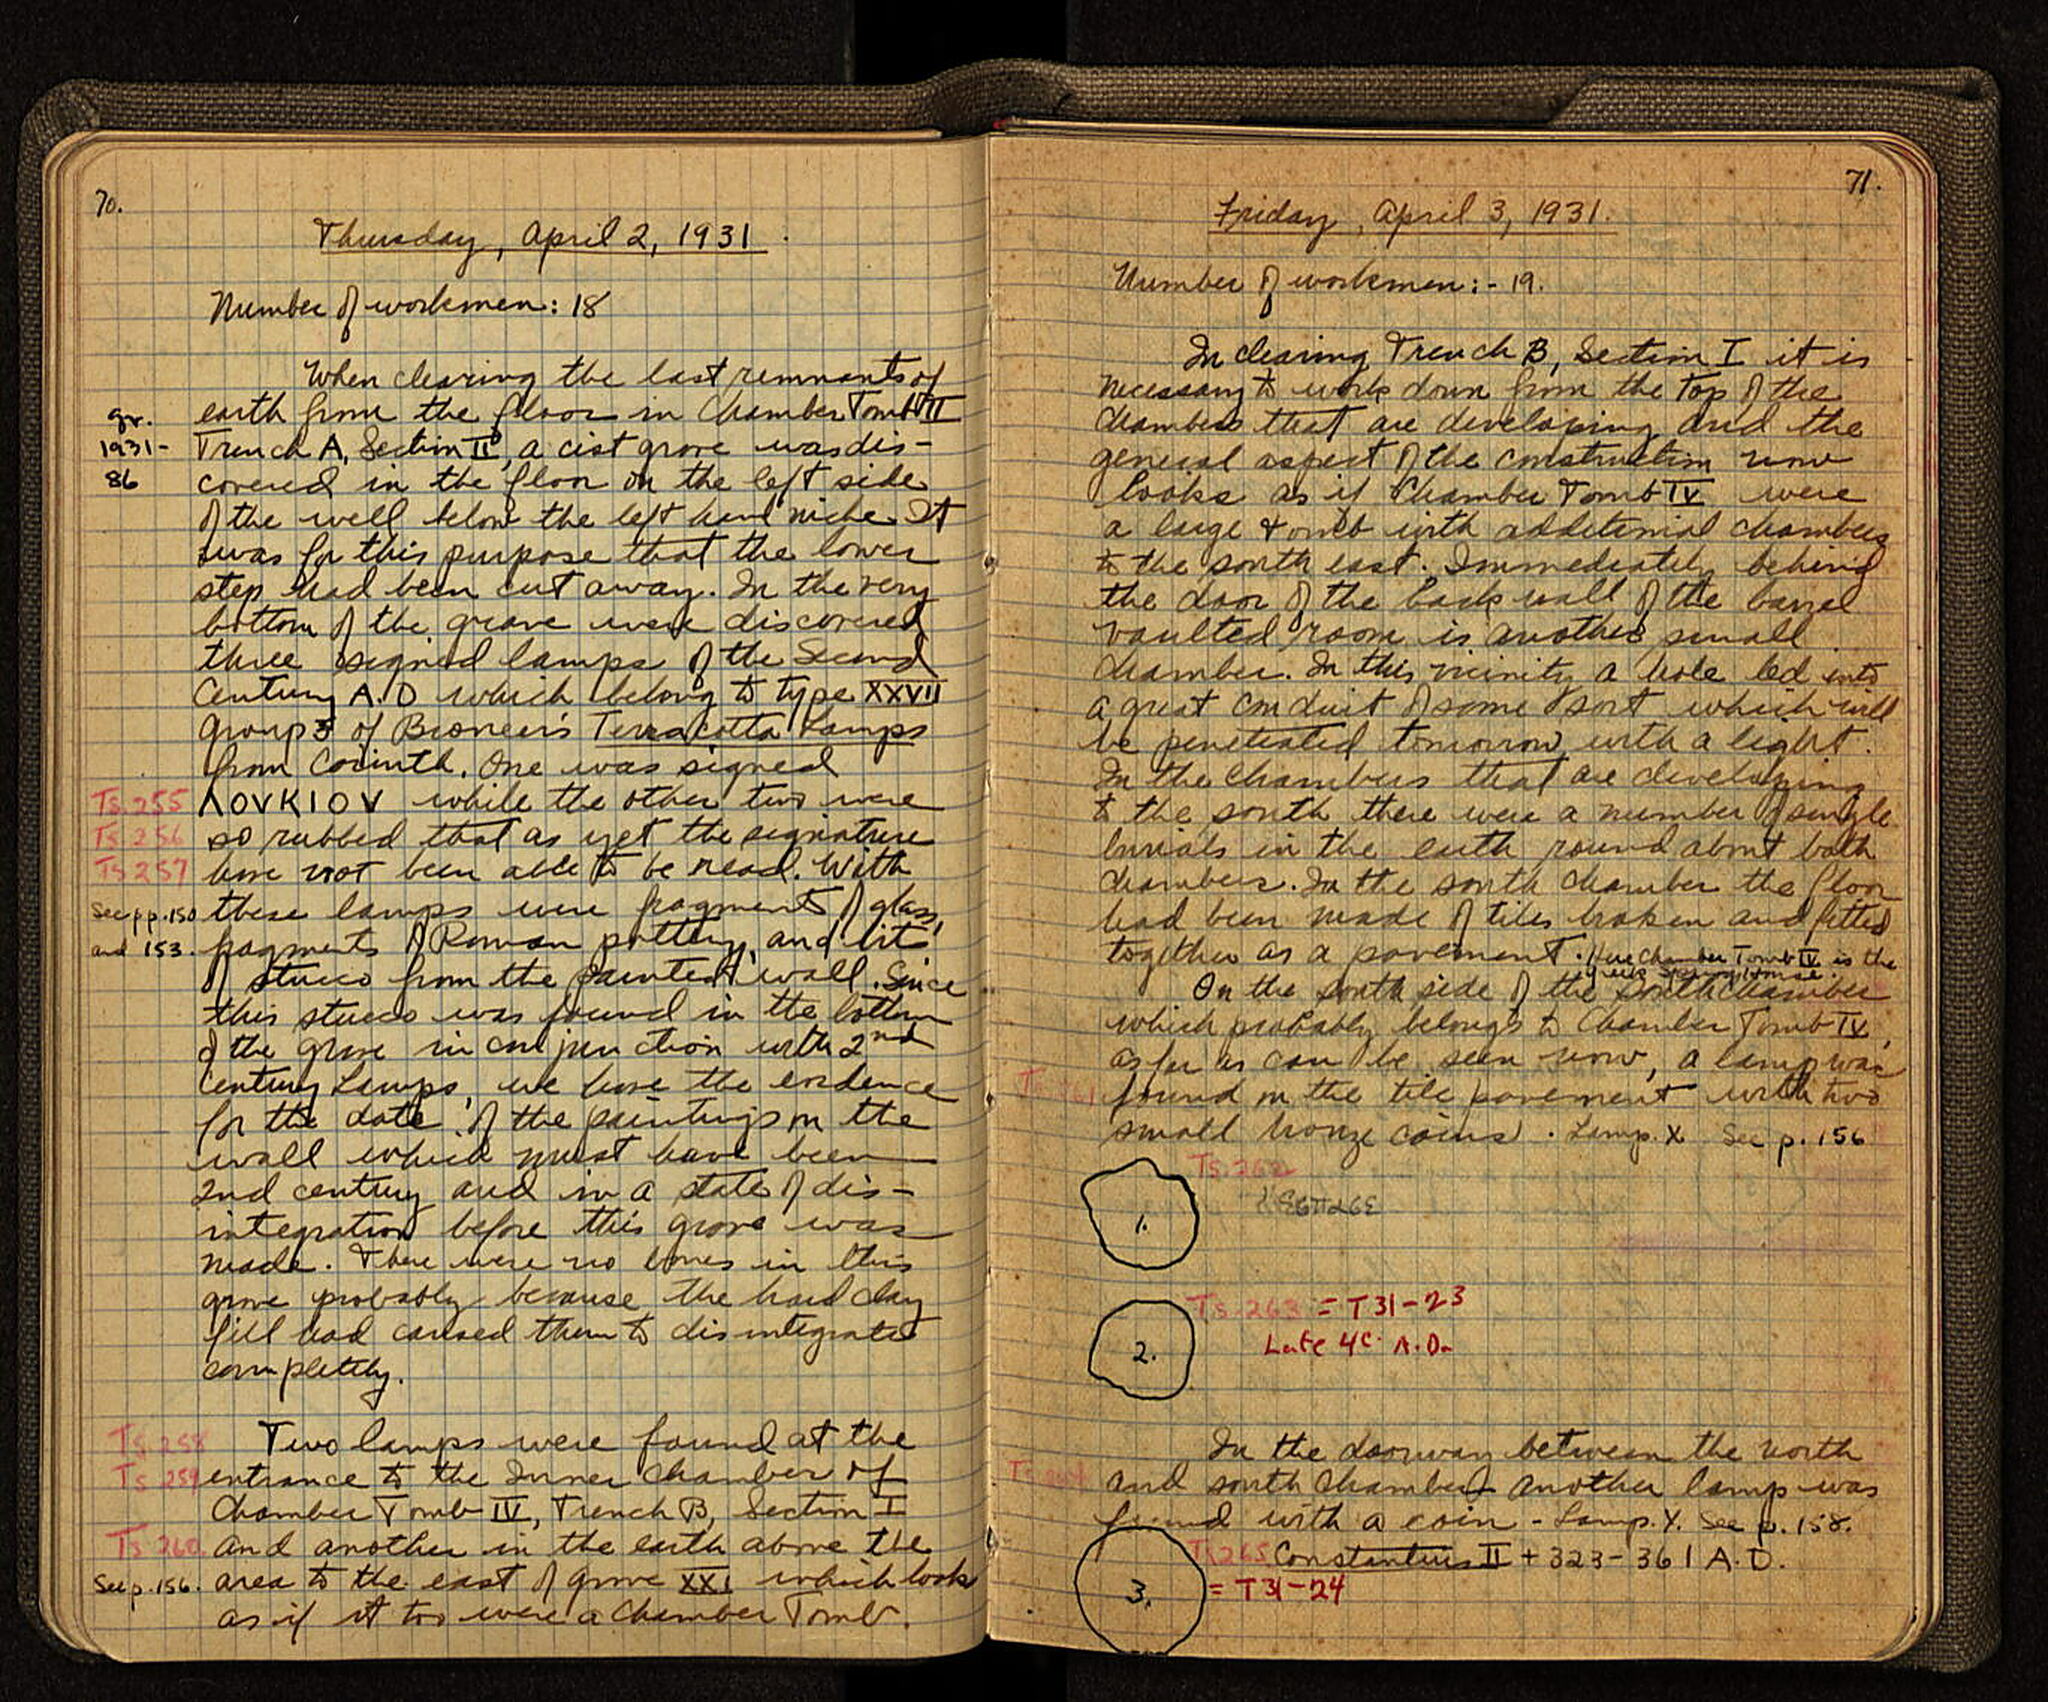 70.
Thursday, April 2, 1931.
Number of workmen: 18
When clearing the last remnants of
gr. 1931-86
earth from the floor in Chamber Tomb VII
Trench A, Section II, a cist grave was dis-
covered in the floor on the left side
of the well below the left hand niche. It
was for this purpose that the lower
step had been cut away. In the very
bottom of the grave were discovered
three signed lamps of the Second
Century A.D which belong to type XXVII
group 3 of Broneer's Terracotta Lamps
from Corinth. One was signed
Ts. 255 ΛΟVΚΙΟV while the other two were
Ts 256 so rubbed that as yet the signature
Ts 257 have not been able to be read. With
See pp. 150 these lamps were fragments of glass,
and 153. fragments of Roman pottery, and bits
of stucco from the painted wall. Since
this stucco was found in the bottom
of the grave in conjunction with 2nd
Century Lamps, we have the evidence
for the date of the paintings on the
wall which must have been
2nd century and in a state of dis-
integration before this grave was
made. There were no bones in this
grave probably because the hard clay
fill had caused them to disintegrate
completely.
Ts 258 Two lamps were found at the
Ts 259 entrance to the Inner Chamber of
Chamber Tomb IV, Trench B, Section I
Ts 260. and another in the earth above the
See p. 156. area to the east of grave XXI which looks
as if it too were a Chamber Tomb.
71.
Friday, April 3, 1931.
Number of workmen:- 19.
In clearing Trench B, Section I it is
necessary to work down from the top of the
chambers that are developing and the
general aspect of the construction now
looks as if Chamber Tomb IV were
a large tomb with additional chambers
to the south east. Immediately behind
the door of the back wall of the barrel
vaulted room is another small
chamber. In this vicinity a hole led into
a great conduit of some sort which will
be penetrated tomorrow with a light.
In the chambers that are developing
to the south there were a number of single
burials in the earth round about both
chambers. In the south chamber the floor
had been made of tiles broken and fitted
together as a pavement. Here Chamber Tomb IV is the
Greek Spring House.
On the south side of the South chamber
which probably belongs to Chamber Tomb IV,
as far as can be seen now, a lamp was
Ts 261 found on the tile pavement with two
small bronze coins. Lamp. X See p. 156
Ts 262
1.
Ts 263 = T31-23
Late 4c. A.D.
2.
In the doorway between the north
and south chambers another lamp was
found with a coin - Lamp. Y. See p. 158.
Ts 265 Constantius II + 323-361 A.D.
3. = T31-24